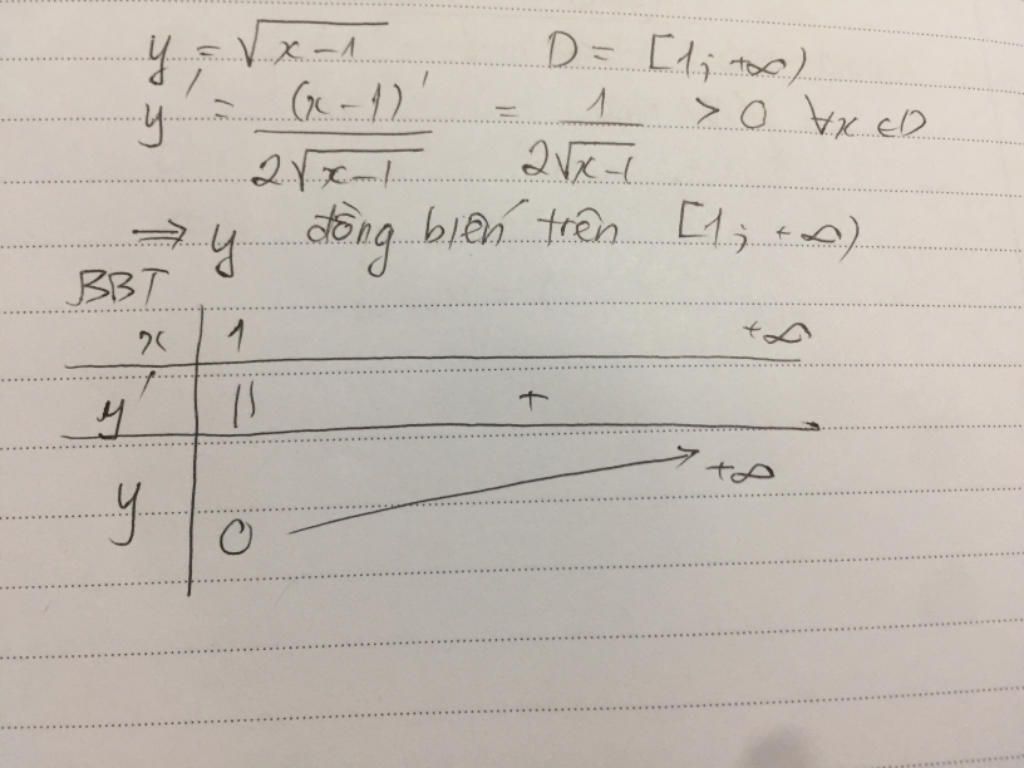 y = √(x-1) D = [1; +∞)
y' = (x-1)' / 2√(x-1) = 1 / 2√(x-1) > 0 ∀x ∈ D
⇒ y đồng biến trên [1; +∞)
BBT
x 1 +∞
y' || +
y 0 +∞